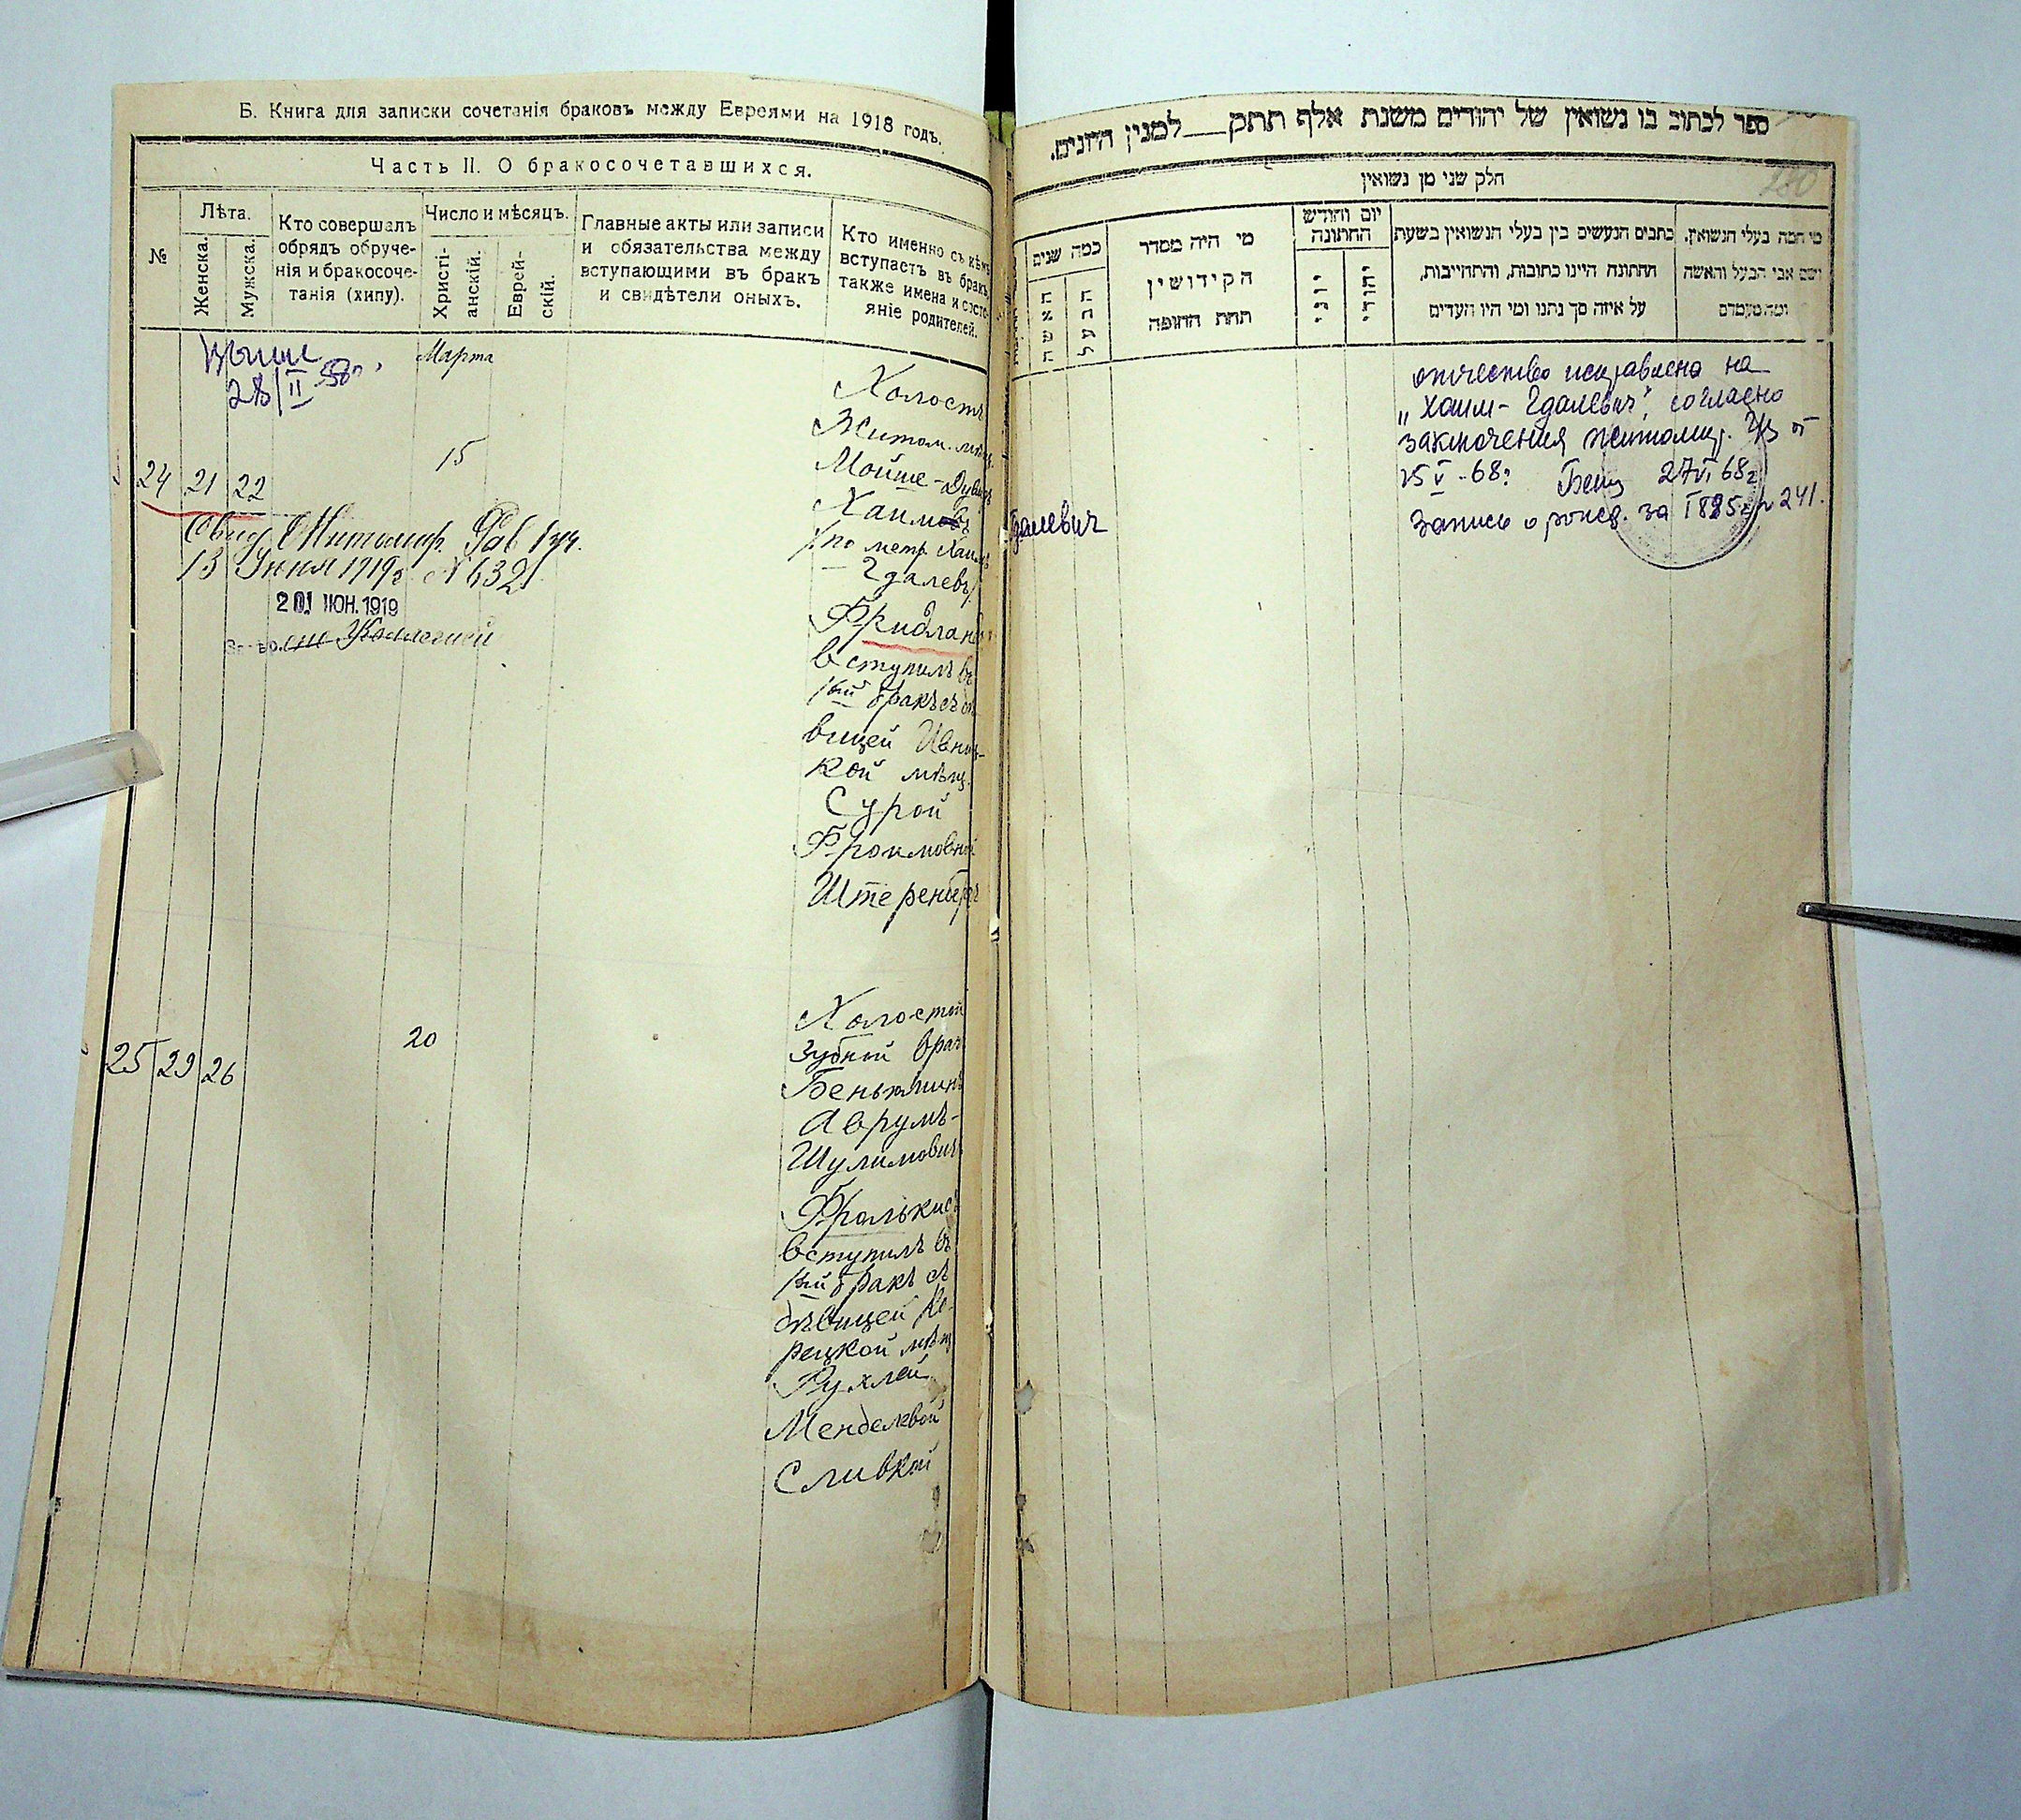 Б. Книга для записки сочетанія браковъ между Евреями на 1918 годъ.
Часть II. О бракосочетавшихся.
№
Лѣта.
Женска.
Мужска.
Кто совершалъ
обрядъ обруче-
нія и бракосоче-
танія (хипу).
Число и мѣсяцъ.
Христі-
анскій.
Еврей-
скій.
Главные акты или записи
и обязательства между
вступающими въ бракъ
и свидѣтели оныхъ.
Кто именно съ кѣмъ
вступаетъ въ бракъ,
также имена и состо-
яніе родителей.
28/II 58г.
Марта
24 21 22
15
Холостъ
Житом. мѣщ.
Мойше-Дувидъ
Хаимовъ
(по метр. Хаимъ
Гдалевъ)
Фридланд
вступилъ въ
1ый бракъ съ дѣ
вицей Ивниц-
кой мѣщ.
Сурой
Фроимовной
Штеренберг
Свид. Житомир. Рав
13 Іюня 1919г. № 632
20 ІЮН. 1919
25 29 26
20
Холостой
Зубной врач
Беньяминъ
Аврумъ-
Шулимовичъ
Фралькис
вступилъ въ
1ый бракъ съ
дѣвицей Ко-
рецкой мѣщ
Рухлей
Менделевой
Сливкой
ספר לכתוב בו נשואין של יהודים משנת אלף תתק__למנין היונים.
חלק שני מן נשואין
כמה שנים
האשה
הבעל
מי היה מסדר
הקידושין
תחת החופה
יום וחודש
החתונה
יוני
יהודי
כתבים הנעשים בין בעלי הנשואין בשעת
החתונה היינו כתובות, והתחייבות,
על איזה סך נתנו ומי היו העדים
מי המה בעלי הנשואין,
ושם אבי הבעל והאשה
ומה מעמדם
Гдалевич
отчество исправлено на
„Хаим-Гдалевич", согласно
заключения житомир. от
25 V-68г. 27 VI 68г
Запись о рожд. за 1895г № 241.